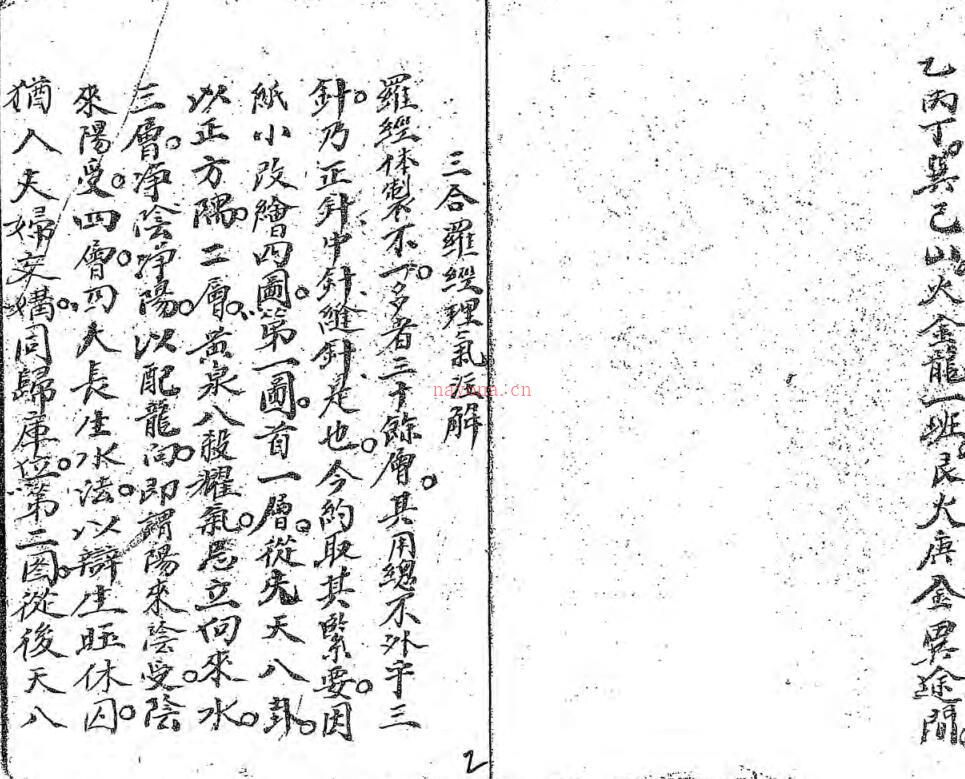 乙丙丁。巽巳山火金龍一班。艮火庚金異途間。
三合羅經理氣解
羅經体製不一。多者三十餘層。其用總不外乎三
針。乃正針中針縫針是也。今約取其緊要。因
紙小改繪四圖。第一圖。首一層。從先天八卦。
以正方隅。二層。黃泉八殺耀氣。忌立向來水。
三層。淨陰淨陽。以配龍向。即謂陽來陰受。陰
來陽受。四層。四大長生水法。以辯生旺休囚。
猶人夫婦交媾。同歸庫位。第二图。從後天八
2
nayona.cn